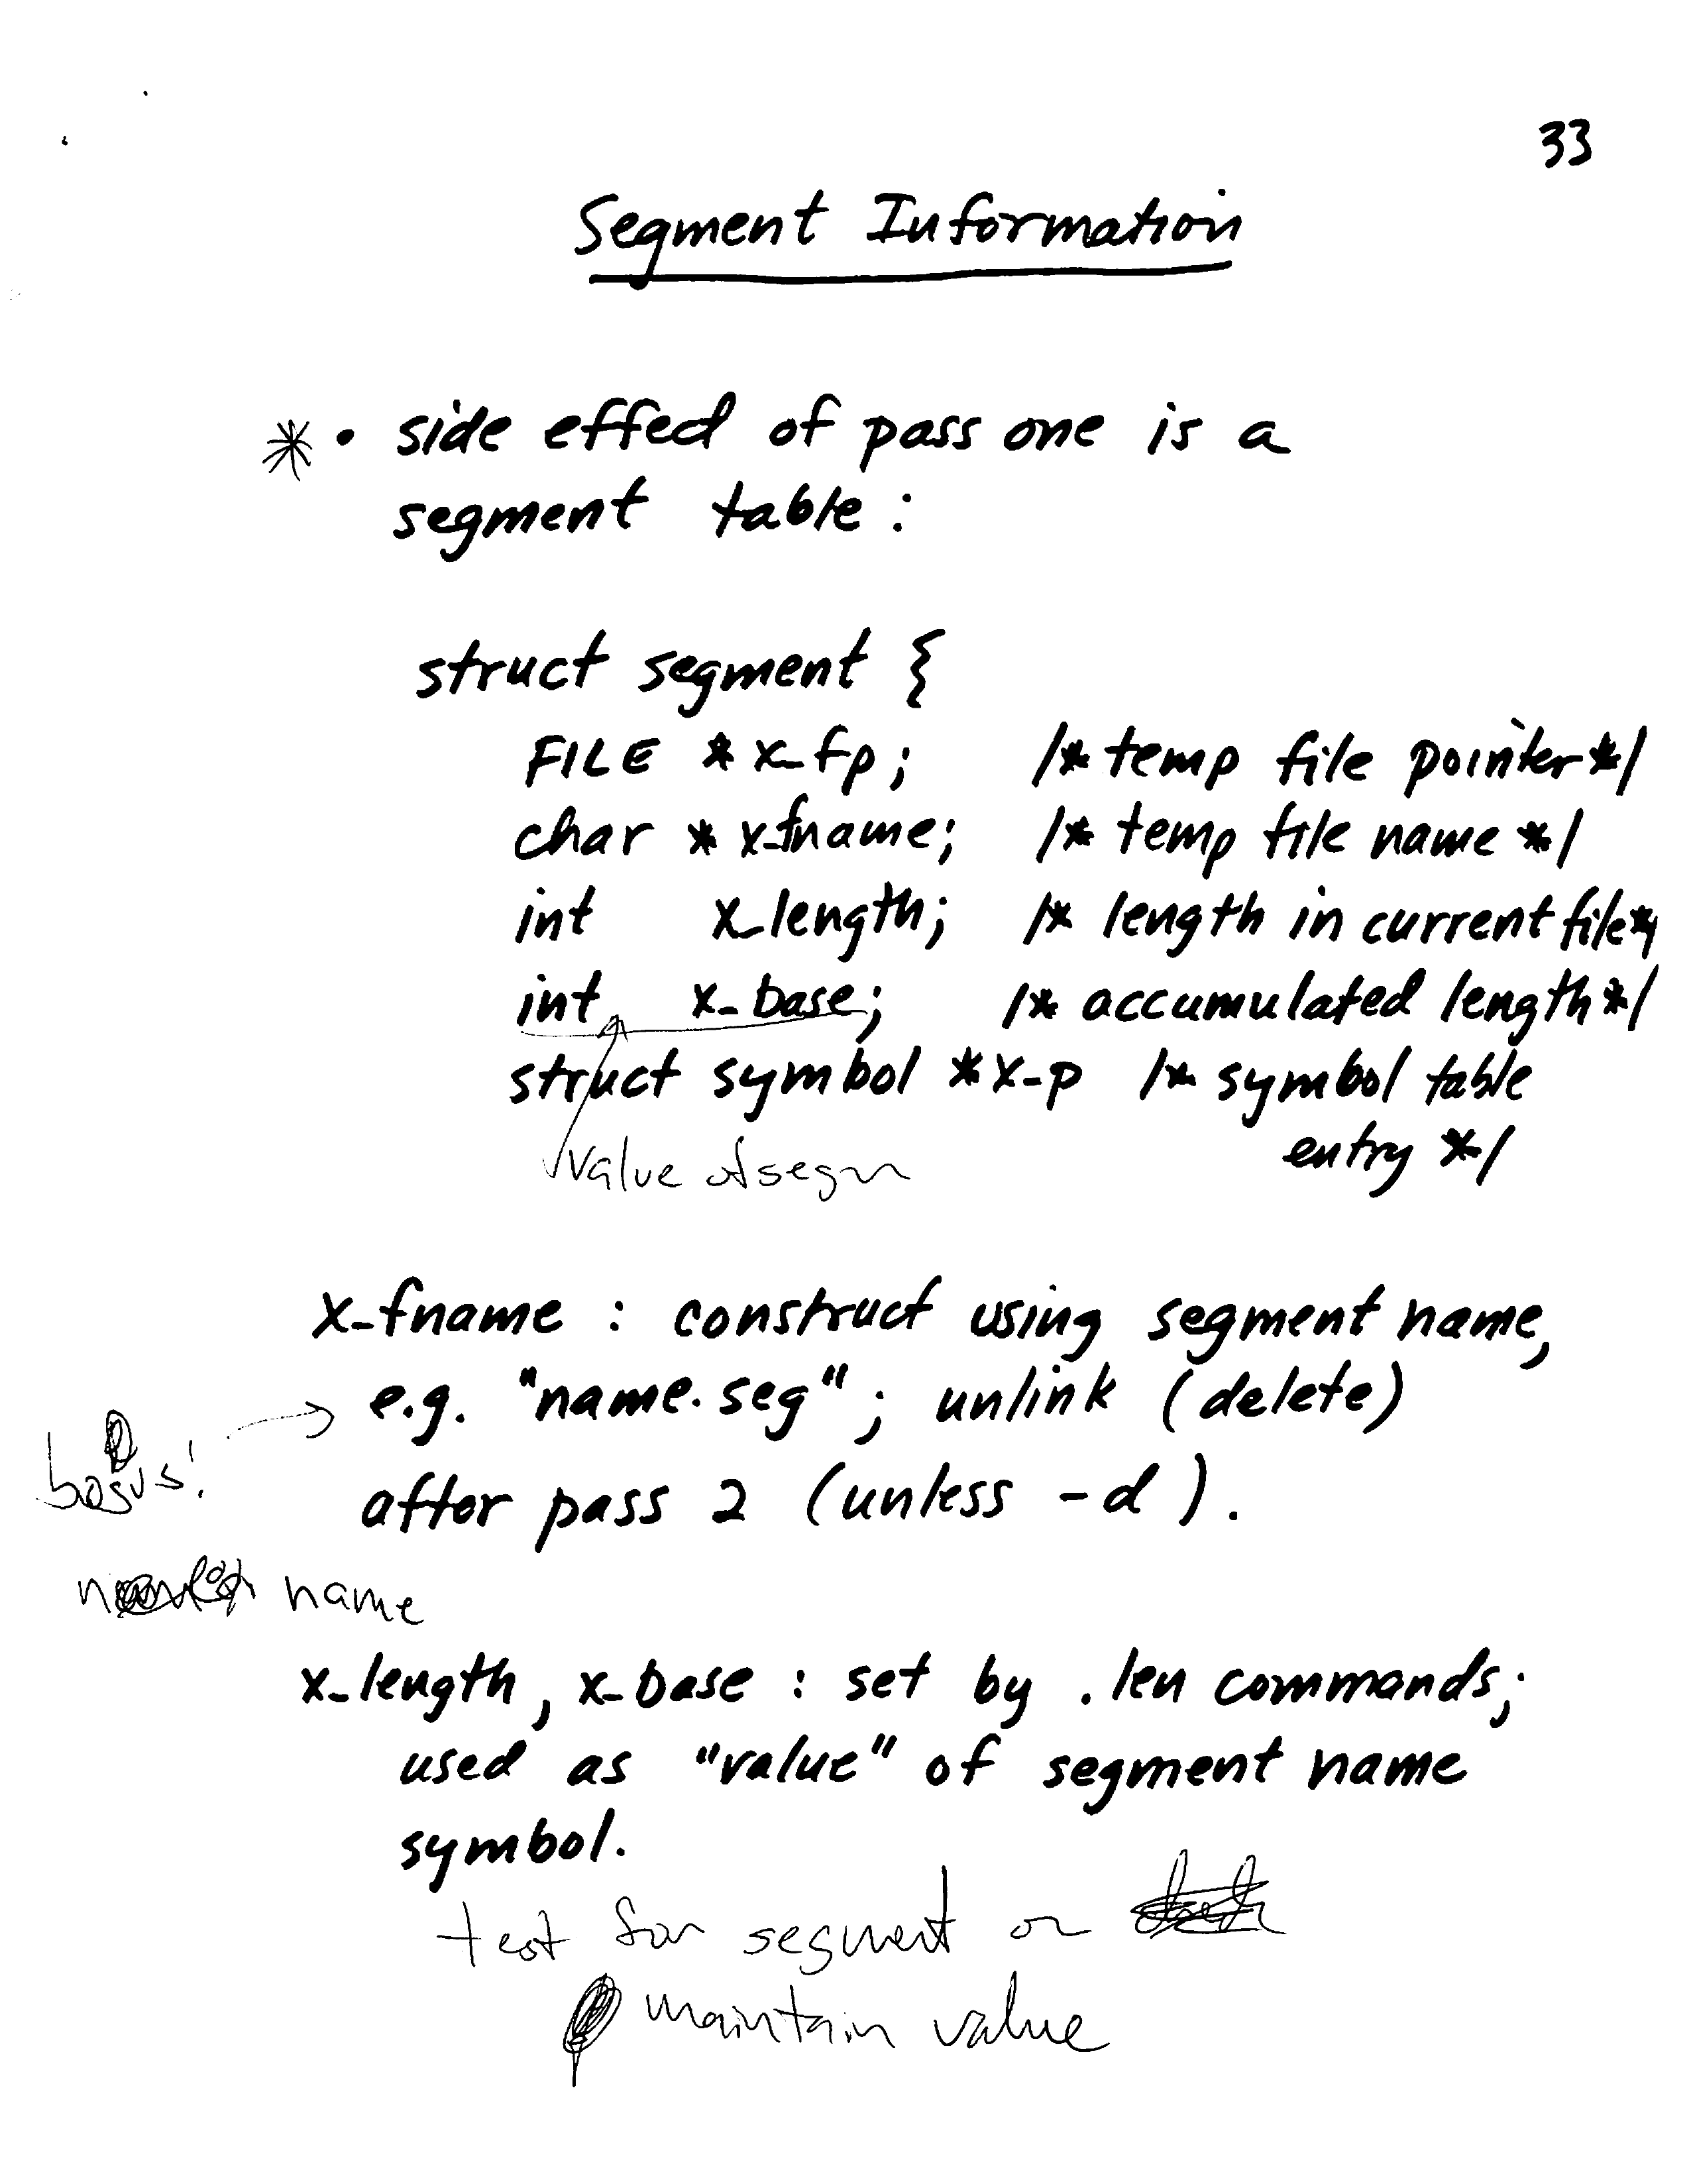 33
Segment Information
* • side effect of pass one is a
segment table :
struct segment {
FILE * x_fp; /* temp file pointer */
char * x_fname; /* temp file name */
int x_length; /* length in current file */
int x_base; /* accumulated length */
struct symbol *x_p /* symbol table
entry */
value of segm
x_fname : construct using segment name,
e.g. "name.seg" ; unlink (delete)
bogus! →
after pass 2 (unless -d ).
name
x_length, x_base : set by .len commands;
used as "value" of segment name
symbol.
test for segment or
maintain value